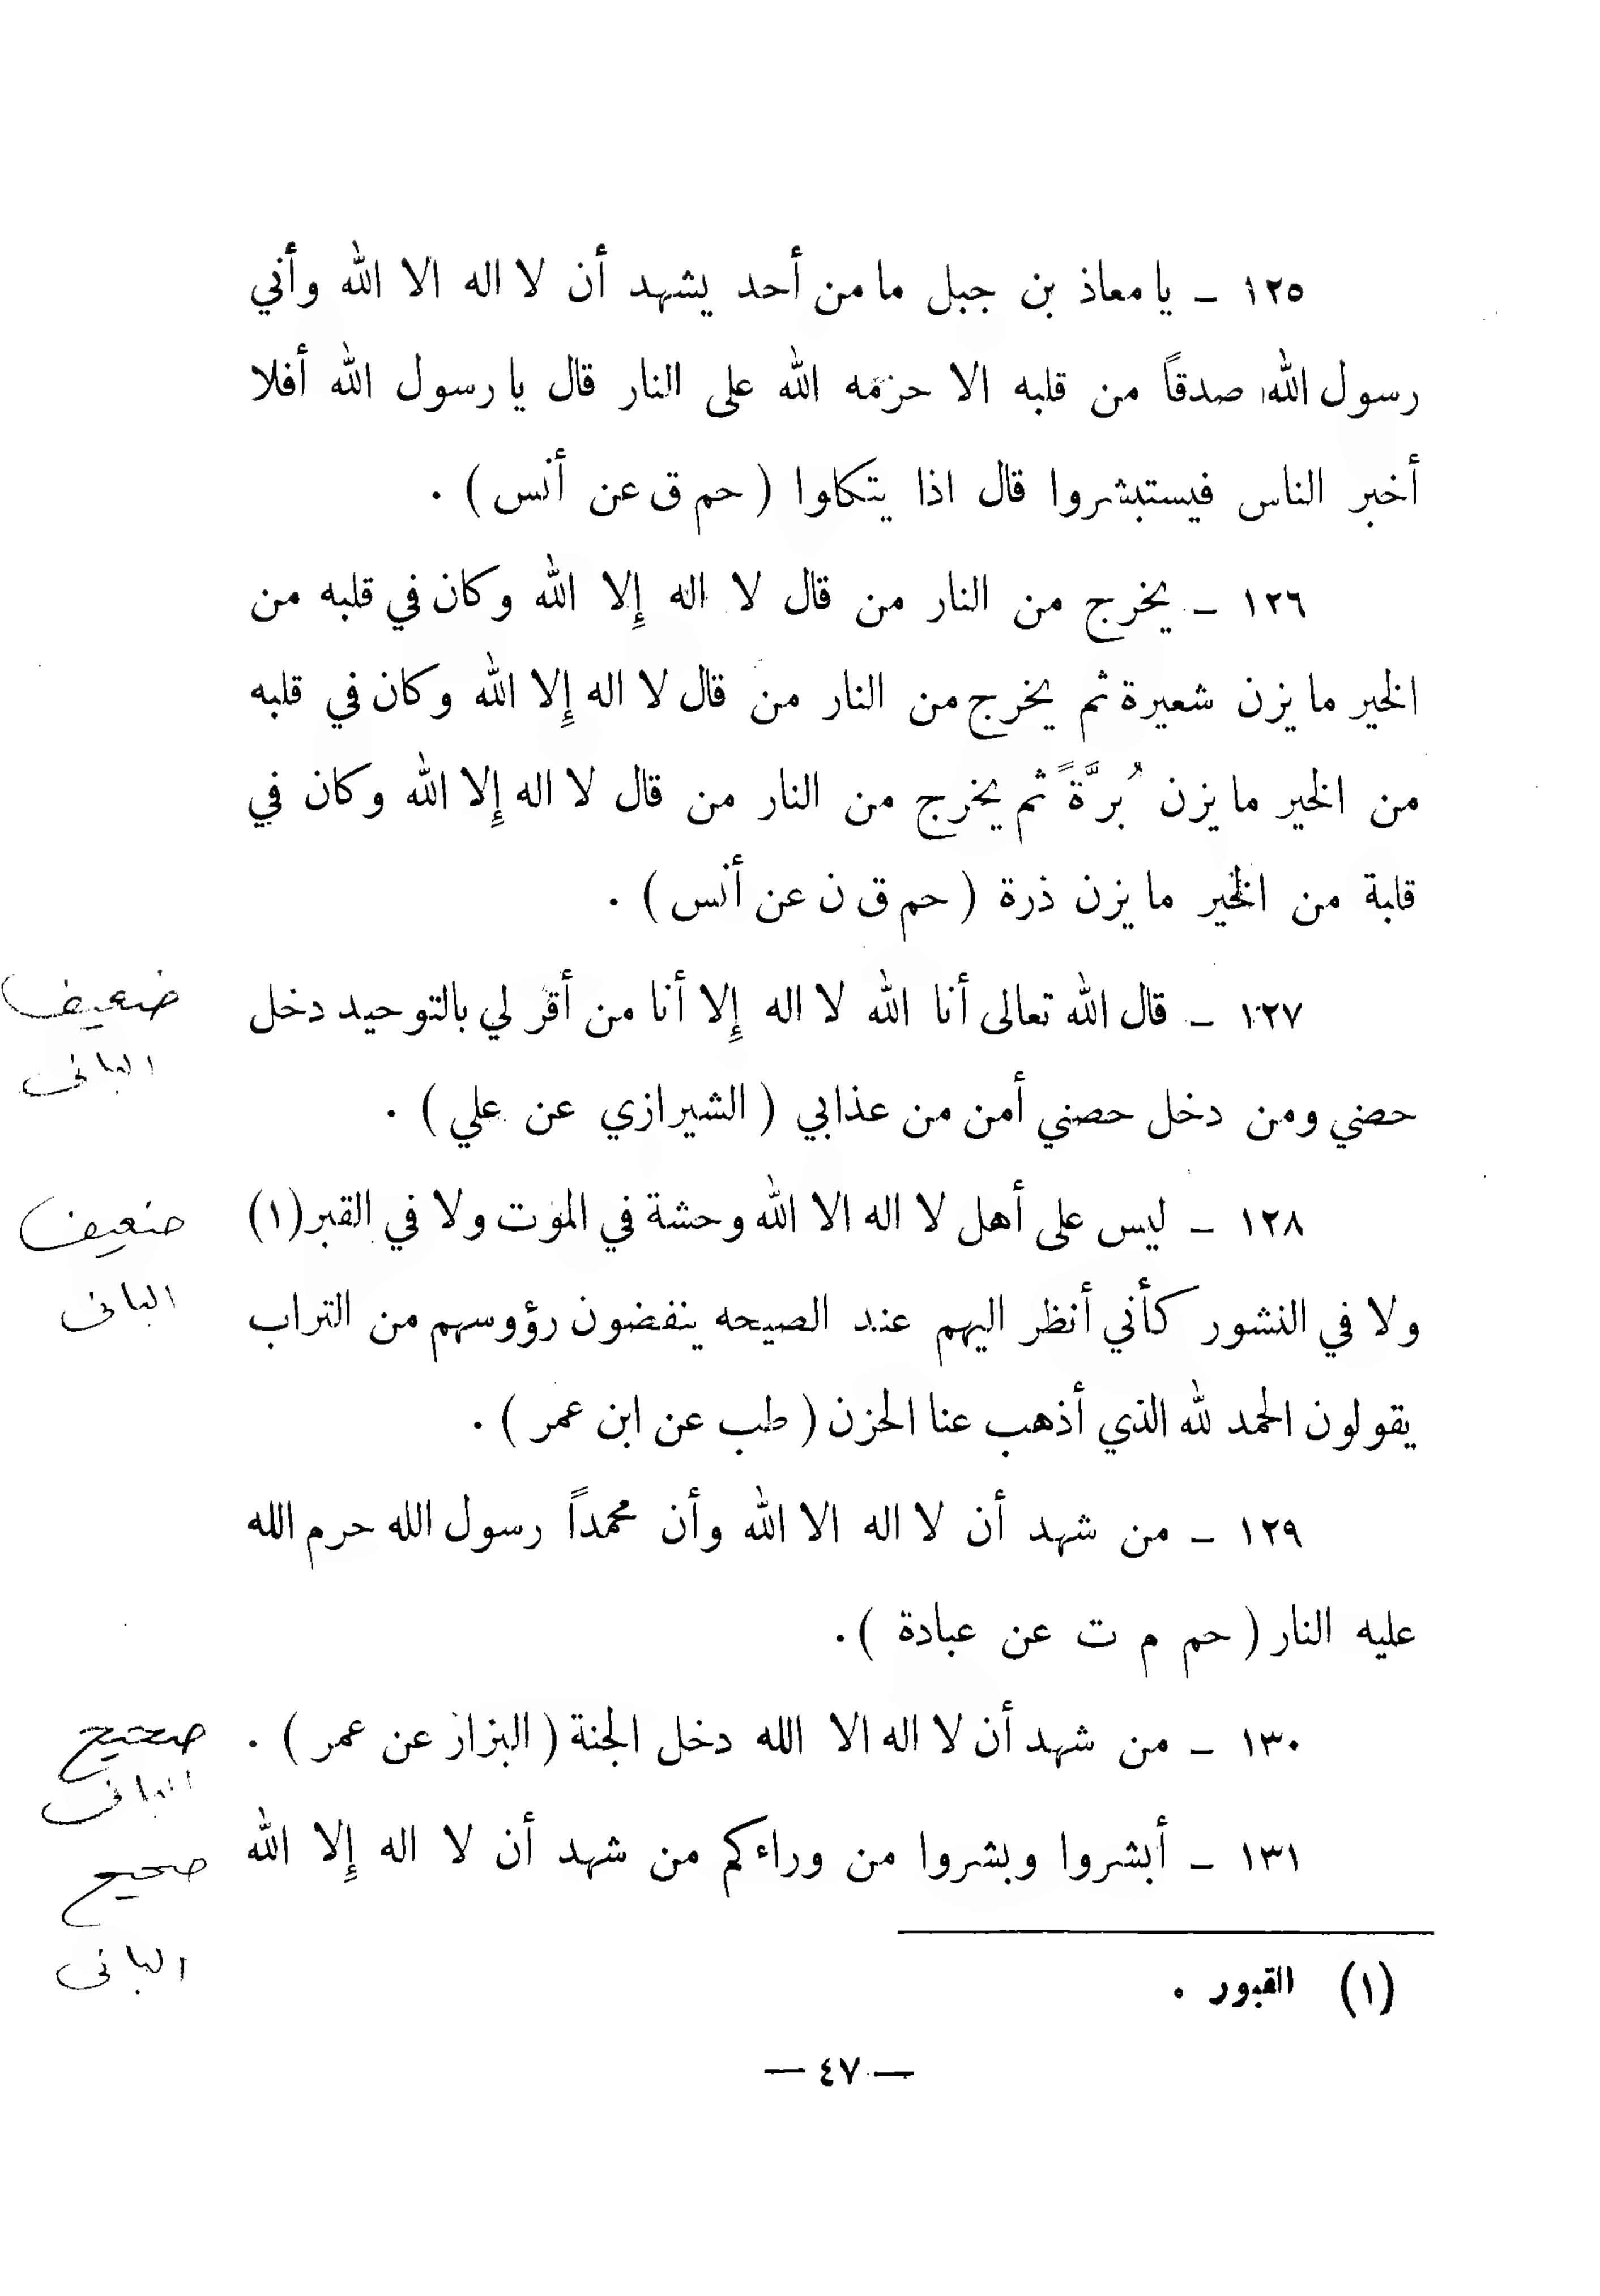 ١٢٥ ـ يا معاذ بن جبل ما من أحد يشهد أن لا اله الا الله وأني
رسول الله صدقاً من قلبه الا حرمه الله على النار قال يا رسول الله أفلا
أخبر الناس فيستبشروا قال اذا يتكلوا ( حم ق عن أنس ) .
١٢٦ ـ يخرج من النار من قال لا اله إلا الله وكان في قلبه من
الخير ما يزن شعيرة ثم يخرج من النار من قال لا اله إلا الله وكان في قلبه
من الخير ما يزن بُرَّةً ثم يخرج من النار من قال لا اله إلا الله وكان في
قلبة من الخير ما يزن ذرة ( حم ق ن عن أنس ) .
١٢٧ ـ قال الله تعالى أنا الله لا اله إلا أنا من أقر لي بالتوحيد دخل
ضعيف
البانى
حصني ومن دخل حصني أمن من عذابي ( الشيرازي عن علي ) .
١٢٨ ـ ليس على أهل لا اله الا الله وحشة في الموت ولا في القبر(١)
ضعيف
البانى
ولا في النشور كأني أنظر اليهم عند الصيحه ينفضون رؤوسهم من التراب
يقولون الحمد لله الذي أذهب عنا الحزن ( طب عن ابن عمر ) .
١٢٩ ـ من شهد أن لا اله الا الله وأن محمداً رسول الله حرم الله
عليه النار ( حم م ت عن عبادة ) .
١٣٠ ـ من شهد أن لا اله الا الله دخل الجنة ( البزار عن عمر ) .
صحيح
البانى
١٣١ ـ أبشروا وبشروا من وراءكم من شهد أن لا اله إلا الله
صحيح
البانى
(١) القبور .
— ٤٧ —